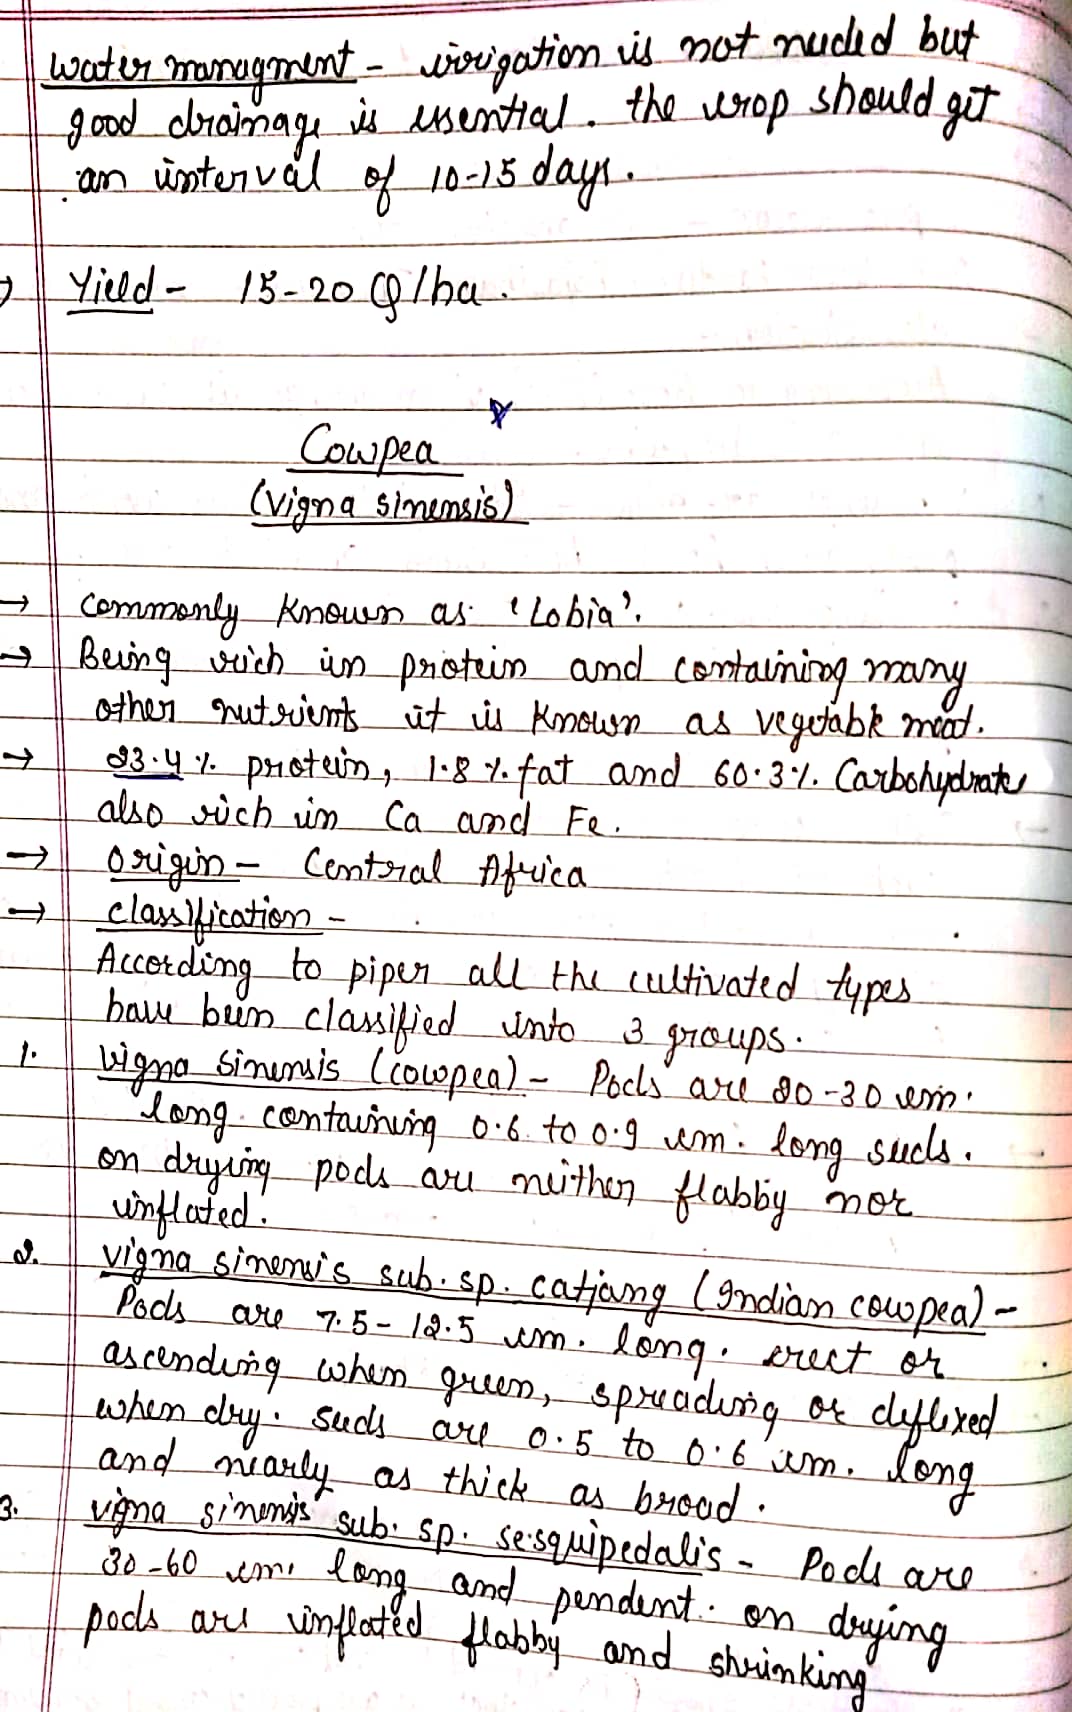 water managment - irrigation is not needed but
good drainage is essential. the crop should get
an interval of 10-15 days.
→ Yield - 15-20 Q/ha.
Cowpea
(Vigna sinensis)
→ Commonly Known as 'Lobia'.
→ Being rich in protein and containing many
other nutrients it is Known as vegetable meat.
→ 23.4 % protein, 1.8 % fat and 60.3 % Carbohydrates
also rich in Ca and Fe.
→ Origin - Central Africa
→ Classification -
According to piper all the cultivated types
have been classified into 3 groups.
1. Vigna sinensis (cowpea) - Pods are 20-30 cm.
long. containing 0.6 to 0.9 cm. long seeds.
on drying pods are neither flabby nor
inflated.
2. Vigna sinensis sub. sp. catjang (Indian cowpea) -
Pods are 7.5-12.5 cm. long. erect or
ascending when green, spreading or deflexed
when dry. seeds are 0.5 to 0.6 cm. long
and nearly as thick as broad.
3. Vigna sinensis sub. sp. sesquipedalis - Pods are
30-60 cm. long and pendent. on drying
pods are inflated flabby and shrinking